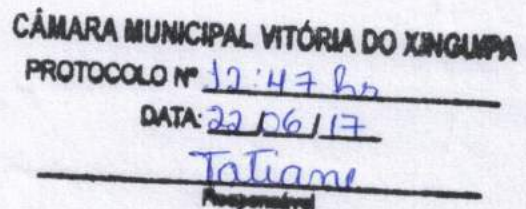 CÂMARA MUNICIPAL VITÓRIA DO XINGU/PA
PROTOCOLO Nº 12:47 hs
DATA: 22/06/17
Tatiane
Responsável